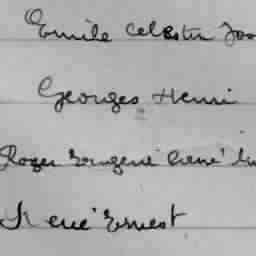 Emile Celestin
Georges Henri
Roger Eugene René
René Ernest